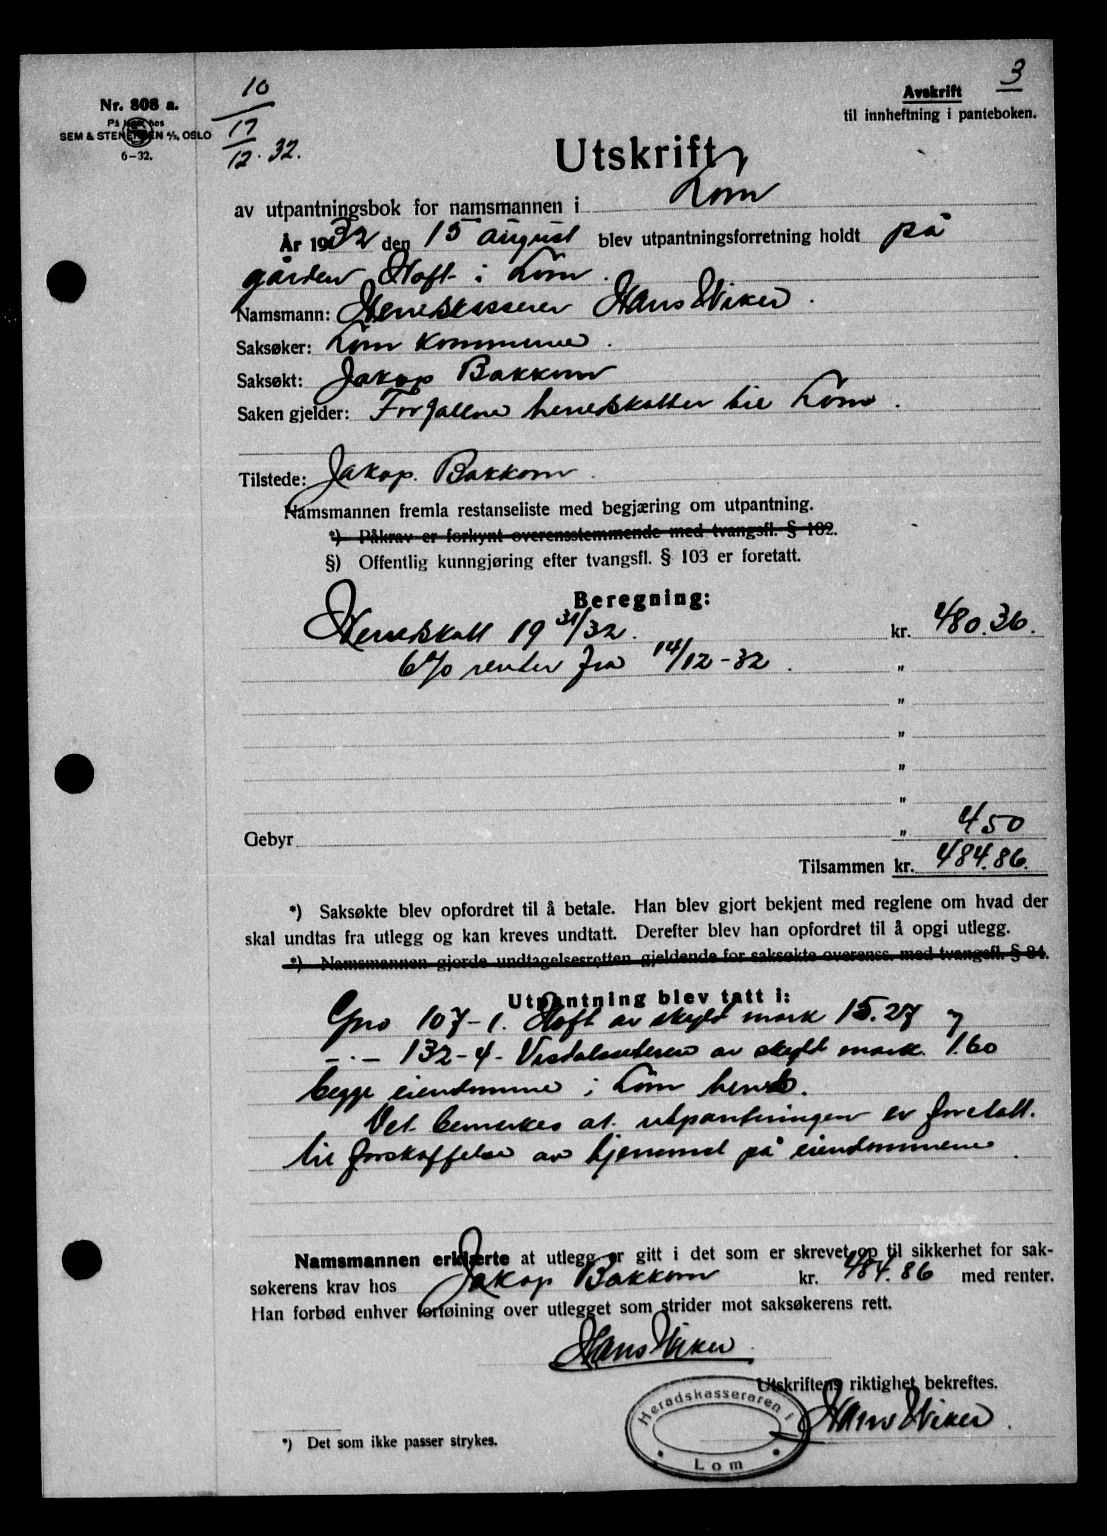 Nr. 808 a.
På lager hos
SEM & STENERSEN A/S, OSLO
6-32.
10
17
12. 32.
3
Avskrift
til innheftning i panteboken.
Utskrift
av utpantningsbok for namsmannen i Lom
År 1932 den 15 august blev utpantningsforretning holdt på
gården Hoft i Lom.
Namsmann: Herredskasserer Hans Wiker.
Saksøker: Lom kommune.
Saksøkt: Jakop Bakkom
Saken gjelder: Forfallne herredskatter til Lom.
Tilstede: Jakop Bakkom.
Namsmannen fremla restanseliste med begjæring om utpantning.
*) Påkrav er forkynt overensstemmende med tvangsfl. § 102.
§) Offentlig kunngjøring efter tvangsfl. § 103 er foretatt.
Beregning:
Herredskatt 19 31/32. kr. 480.36.
6% renter fra 14/12-32. "
"
"
"
"
Gebyr " 4 50
Tilsammen kr. 484.86.
*) Saksøkte blev opfordret til å betale. Han blev gjort bekjent med reglene om hvad der
skal undtas fra utlegg og kan kreves undtatt. Derefter blev han opfordret til å opgi utlegg.
*) Namsmannen gjorde undtagelsesretten gjeldende for saksøkte overenss. med tvangsfl. § 84.
Utpantning blev tatt i:
Gno 107-1. Hoft av skyld mark 15.27 og
- " - 132-4- Visdalsseteren av skyld mark. 1.60
begge eiendomme i Lom herred.
Det bemerkes at utpantningen er foretatt
til forskaffelse av hjemmel på eiendommene.
Namsmannen erklærte at utlegg er gitt i det som er skrevet op til sikkerhet for sak-
søkerens krav hos Jakop Bakkom kr. 484.86 med renter.
Han forbød enhver forføining over utlegget som strider mot saksøkerens rett.
Hans Wiker
Utskriftens riktighet bekreftes.
Hans Wiker.
Heradskasseraren i
Lom
*) Det som ikke passer strykes.